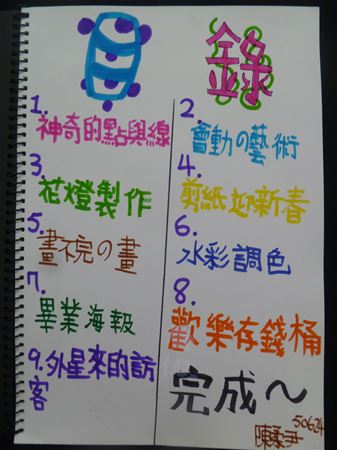 目錄
1.
神奇的點與線
2.
會動の藝術
3.
花燈製作
4.
剪紙迎新春
5.
畫不完の畫
6.
水彩調色
7.
畢業海報
8.
歡樂存錢桶
9.外星來的訪
客
完成～
50624